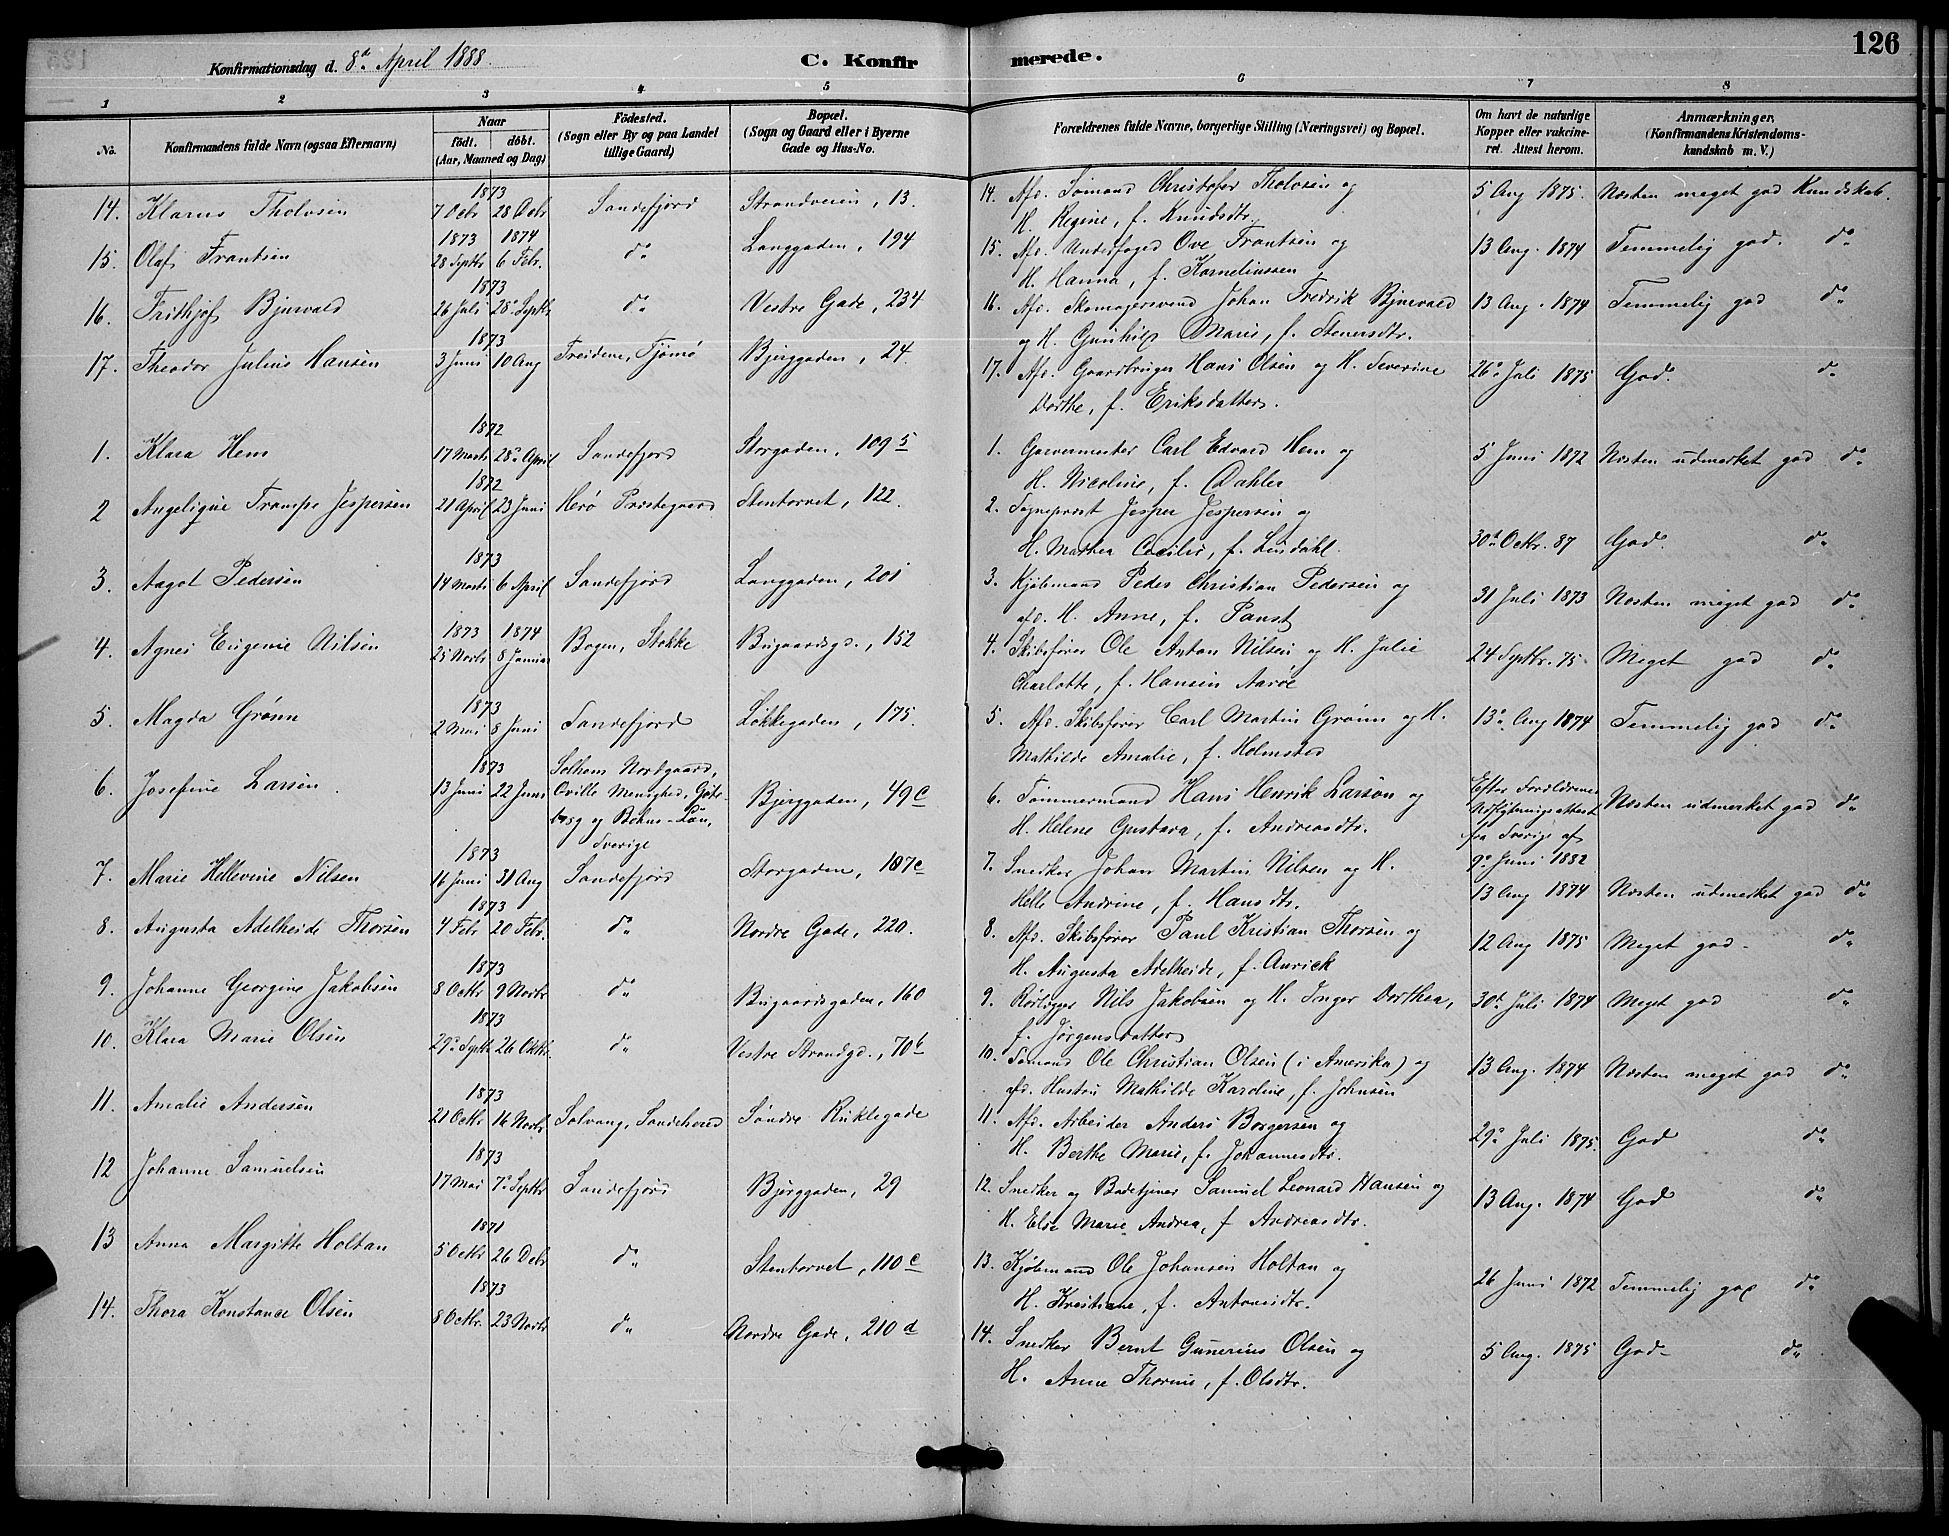 126
Konfirmationsdag d. 8de April 1888.
C. Konfirmerede.
1 2 3 4 5 6 7 8
No.
Konfirmandens fulde Navn (ogsaa Efternavn)
Naar
födt. döbt.
(Aar, Maaned og Dag)
Födested.
(Sogn eller By og paa Landet
tillige Gaard)
Bopæl.
(Sogn og Gaard eller i Byerne
Gade og Hus-No.
Forældrenes fulde Navne, borgerlige Stilling (Næringsvei) og Bopæl.
Om havt de naturlige
Kopper eller vakcine-
ret. Attest herom.
Anmærkninger.
(Konfirmandens Kristendoms-
kundskab m. V.)
1873
14. Klarus Tholvsen 7 Octr 28 Octr Sandefjord Strandveien, 13. 14. Afd. Sömand Christofer Tholvsen og 5 Aug 1875. Næsten meget god Kundskab.
H. Regine, f. Knudsdtr.
1873 1874
15. Olaf Frantsen 28 Septbr 6 Febr. do Langgaden, 194 15. Afd. Underfoged Ove Frantsen og 13 Aug. 1874 Temmelig god. do
H. Hanna, f. Korneliussen
1873
16. Frithjof Bjurvald 26 Juli 28 Septbr do Vestre Gade, 234 16. Afd. Skomagersvend Johan Fredrik Bjurvald 13 Aug. 1874 Temmelig god do
og H. Gunhild Marie, f. Stenersdtr.
1873
17. Theodor Julius Hansen 3 Juni 10 Aug Treidene, Tjömö Bjerggaden, 24 17. Afd. Gaardbruger Hans Olsen og H. Severine 26 Juli 1875 God. do
Dorthe, f. Eriksdatter.
1872
1. Klara Hem 17 Marts 28 April Sandefjord Storgaden, 109 5 1. Garvermester Carl Edvard Hem og 5 Juni 1872 Næsten udmerket god do
H. Nicoline, f. Dahler
1872
2 Angelique Trampe Jespersen 21 April 23 Juni Herö Præstegaard Stentorvet, 122. 2. Sogneprest Jesper Jespersen og
H. Mathea Cecilie, f. Lindahl. 30 Octbr. 87 God. do
1873
3. Aagot Pedersen 14 Marts 6 April Sandefjord Langgaden, 201 3. Kjöbmand Peder Christian Pedersen og 31 Juli 1873 Næsten meget god do
afd. H. Anne, f. Paust
1873 1874
4. Agnes Eugenie Nilsen 25 Novbr 8 Januar Bogen, Stokke Bugaardsgd., 152 4. Skibsförer Ole Anton Nilsen og H. Julie 24 Septbr. 75. Meget god do
Charlotte, f. Hansen Aaröe
1873
5. Magda Grönn 2 Mai 8 Juni Sandefjord Lökkegaden, 175. 5. Afd. Skibsförer Carl Martin Grönn og H. 13 Aug 1874 Temmelig god do
Mathilde Amalie, f. Holmsted
1873
6. Josefine Larsen. 13 Juni 22 Juni Solhem Nordgaard,
Oville Menighed, Göte-
borg og Bohus-Län,
Sverige Bjerggaden, 49 c 6. Tömmermand Hans Henrik Larson og Efter Forældrenes
Udflytningsattest
fra Sverige af
9 Juni 1882 Næsten udmerket god do
H. Helene Gustava, f. Andreasdtr.
1873
7. Marie Hellevine Nilsen 16 Juni 31 Aug Sandefjord Storgaden, 107 c 7. Snedker Johan Martin Nilsen og H. 13 Aug 1874 Næsten udmerket god do
Helle Andrine, f. Hansdtr.
1873
8. Augusta Adelheide Thorsen 4 Febr 20 Febr. do Nordre Gade, 220. 8. Afd. Skibsförer Paul Kristian Thorsen og 12 Aug 1875 Meget god. do
H. Augusta Adelheide, f. Aurick
1873
9. Johanne Georgine Jakobsen 8 Octbr 9 Novbr do Bugaardsgaden, 160 9. Rörlægger Nils Jakobsen og H. Inger Dorthea, 30 Juli 1874 Meget god do
f. Jörgensdatter
1873
10. Klara Marie Olsen 29 Septb 26 Oktbr. do Vestre Strandgd., 70 b 10. Sömand Ole Christian Olsen (i Amerika) og 13 Aug. 1874 Næsten meget god do
afd. Hustru Mathilde Karoline, f. Johnsen
1873
11. Amalie Andersen 21 Octbr 16 Novbr Solvang, Sandeherred Söndre Ruklegade 11. Afd. Arbeider Anders Borgersen og 29 Juli 1875. God do
H. Berthe Marie, f. Johannesdtr.
1873
12 Johanne Samuelsen 17 Mai 7 Septbr Sandefjord Bjerggaden, 29 12. Snedker og Badetjener Samuel Leonard Hansen og 13 Aug. 1874 God do
H. Else Marie Andrea, f Andreasdtr.
1871
13 Anna Margitte Holtan 5 Octbr 26 Debr do Stentorvet, 110 c 13. Kjöbmand Ole Johansen Holtan og 26 Juni 1872 Temmelig god do
H. Kristiane, f. Antonsdtr.
1873
14. Thora Konstance Olsen 8 Octbr. 23 Novbr do Nordre Gade, 210 d 14. Snedker Bernt Gunerius Olsen og 5 Aug. 1875 God do
H. Anne Thorine, f. Olsdtr.